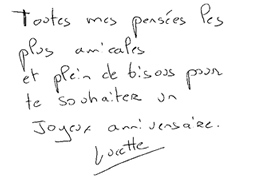 Toutes mes pensées les
plus amicales
et plein de bisous pour
te souhaiter un
Joyeux anniversaire.
Lucette